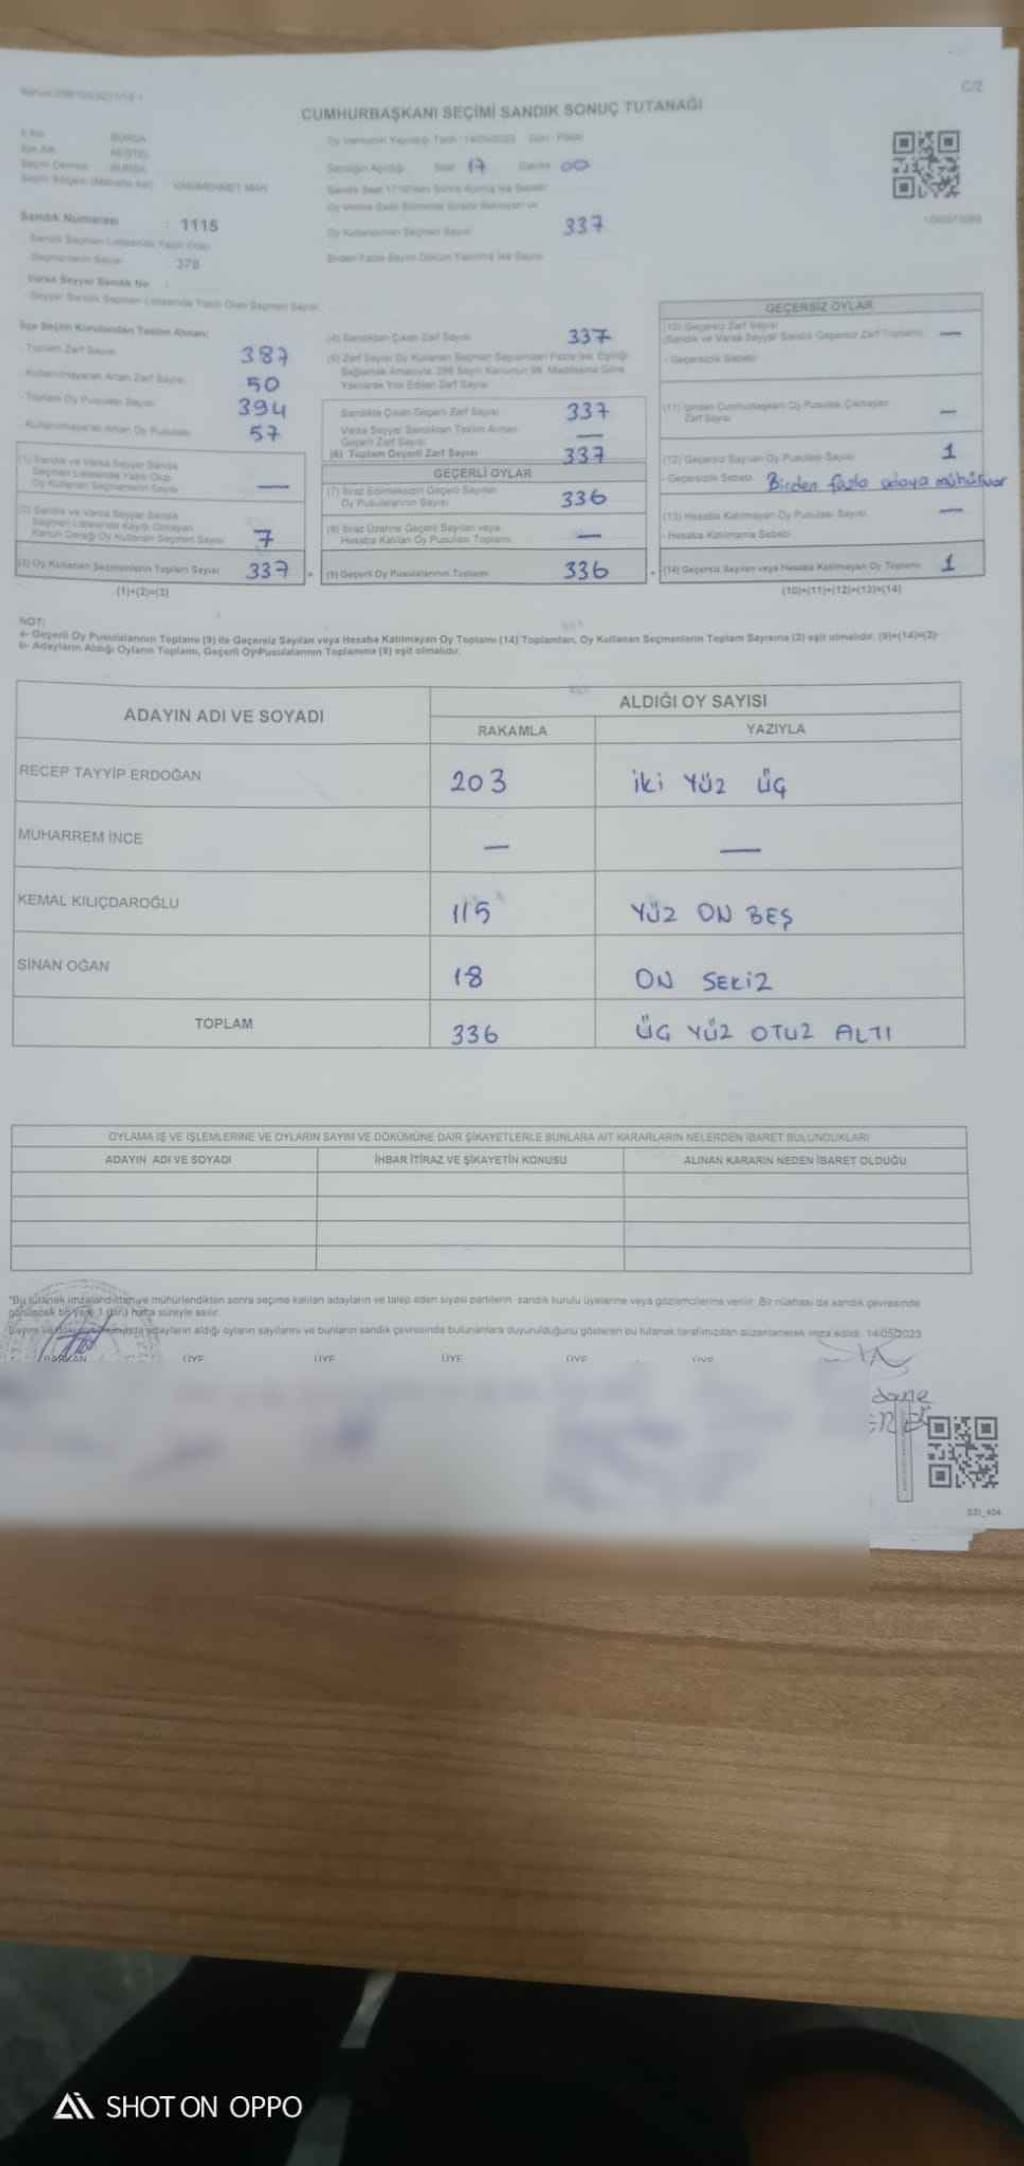 C/2
CUMHURBAŞKANI SEÇİMİ SANDIK SONUÇ TUTANAĞI
BURSA
KESTEL
BURSA
Sandığın Açıldığı Saat 17 Dakika 00
Sandık Numarası : 1115
Oy Kullanan Seçmen Sayısı 337
378
Varsa Seyyar Sandık No :
İlçe Seçim Kurulundan Teslim Alınan:
Toplam Zarf Sayısı 387
Kullanılmayarak Artan Zarf Sayısı 50
Toplam Oy Pusulası Sayısı 394
Kullanılmayarak Artan Oy Pusulası 57
(1) Sandık ve Varsa Seyyar Sandık
Seçmen Listesinde Yazılı Olup
Oy Kullanan Seçmenlerin Sayısı —
7
(3) Oy Kullanan Seçmenlerin Toplam Sayısı 337
(1)+(2)=(3)
(4) Sandıktan Çıkan Zarf Sayısı 337
Sandıkta Çıkan Geçerli Zarf Sayısı 337
Varsa Seyyar Sandıktan Teslim Alınan
Geçerli Zarf Sayısı —
(6) Toplam Geçerli Zarf Sayısı 337
GEÇERLİ OYLAR
(7) İtiraz Edilmeksizin Geçerli Sayılan
Oy Pusulalarının Sayısı 336
(8) İtiraz Üzerine Geçerli Sayılan veya
Hesaba Katılan Oy Pusulası Toplamı —
(9) Geçerli Oy Pusulalarının Toplamı 336
GEÇERSİZ OYLAR
(10) Geçersiz Zarf Sayısı
(Sandık ve Varsa Seyyar Sandık Geçersiz Zarf Toplamı) —
- Geçersizlik Sebebi
Zarf Sayısı —
(12) Geçersiz Sayılan Oy Pusulası Sayısı 1
- Geçersizlik Sebebi Birden fazla adaya mühür var
(13) Hesaba Katılmayan Oy Pusulası Sayısı —
- Hesaba Katılmama Sebebi
(14) Geçersiz Sayılan veya Hesaba Katılmayan Oy Toplamı 1
(10)+(11)+(12)+(13)=(14)
NOT:
a- Geçerli Oy Pusulalarının Toplamı (9) ile Geçersiz Sayılan veya Hesaba Katılmayan Oy Toplamı (14) Toplamları, Oy Kullanan Seçmenlerin Toplam Sayısına (3) eşit olmalıdır. (9)+(14)=(3)
b- Adayların Aldığı Oyların Toplamı, Geçerli Oy Pusulalarının Toplamına (9) eşit olmalıdır.
ADAYIN ADI VE SOYADI
ALDIĞI OY SAYISI
RAKAMLA YAZIYLA
RECEP TAYYİP ERDOĞAN 203 İKİ YÜZ ÜÇ
MUHARREM İNCE — —
KEMAL KILIÇDAROĞLU 115 YÜZ ON BEŞ
SİNAN OĞAN 18 ON SEKİZ
TOPLAM 336 ÜÇ YÜZ OTUZ ALTI
OYLAMA İŞ VE İŞLEMLERİNE VE OYLARIN SAYIM VE DÖKÜMÜNE DAİR ŞİKAYETLERLE BUNLARA AİT KARARLARIN NELERDEN İBARET BULUNDUKLARI
ADAYIN ADI VE SOYADI İHBAR İTİRAZ VE ŞİKAYETİN KONUSU ALINAN KARARIN NEDEN İBARET OLDUĞU
"Bu tutanak imzalandıktan ve mühürlendikten sonra seçime katılan adayların ve talep eden siyasi partilerin sandık kurulu üyelerine veya gözlemcilerine verilir. Bir nüshası da sandık çevresinde
görülecek bir yere 1 (bir) hafta süreyle asılır.
adayların aldığı oyların sayılarını ve bunların sandık çevresinde bulunanlara duyurulduğunu gösteren bu tutanak tarafımızdan düzenlenerek imza edildi. 14/05/2023
BAŞKAN ÜYE ÜYE ÜYE ÜYE ÜYE
SHOT ON OPPO